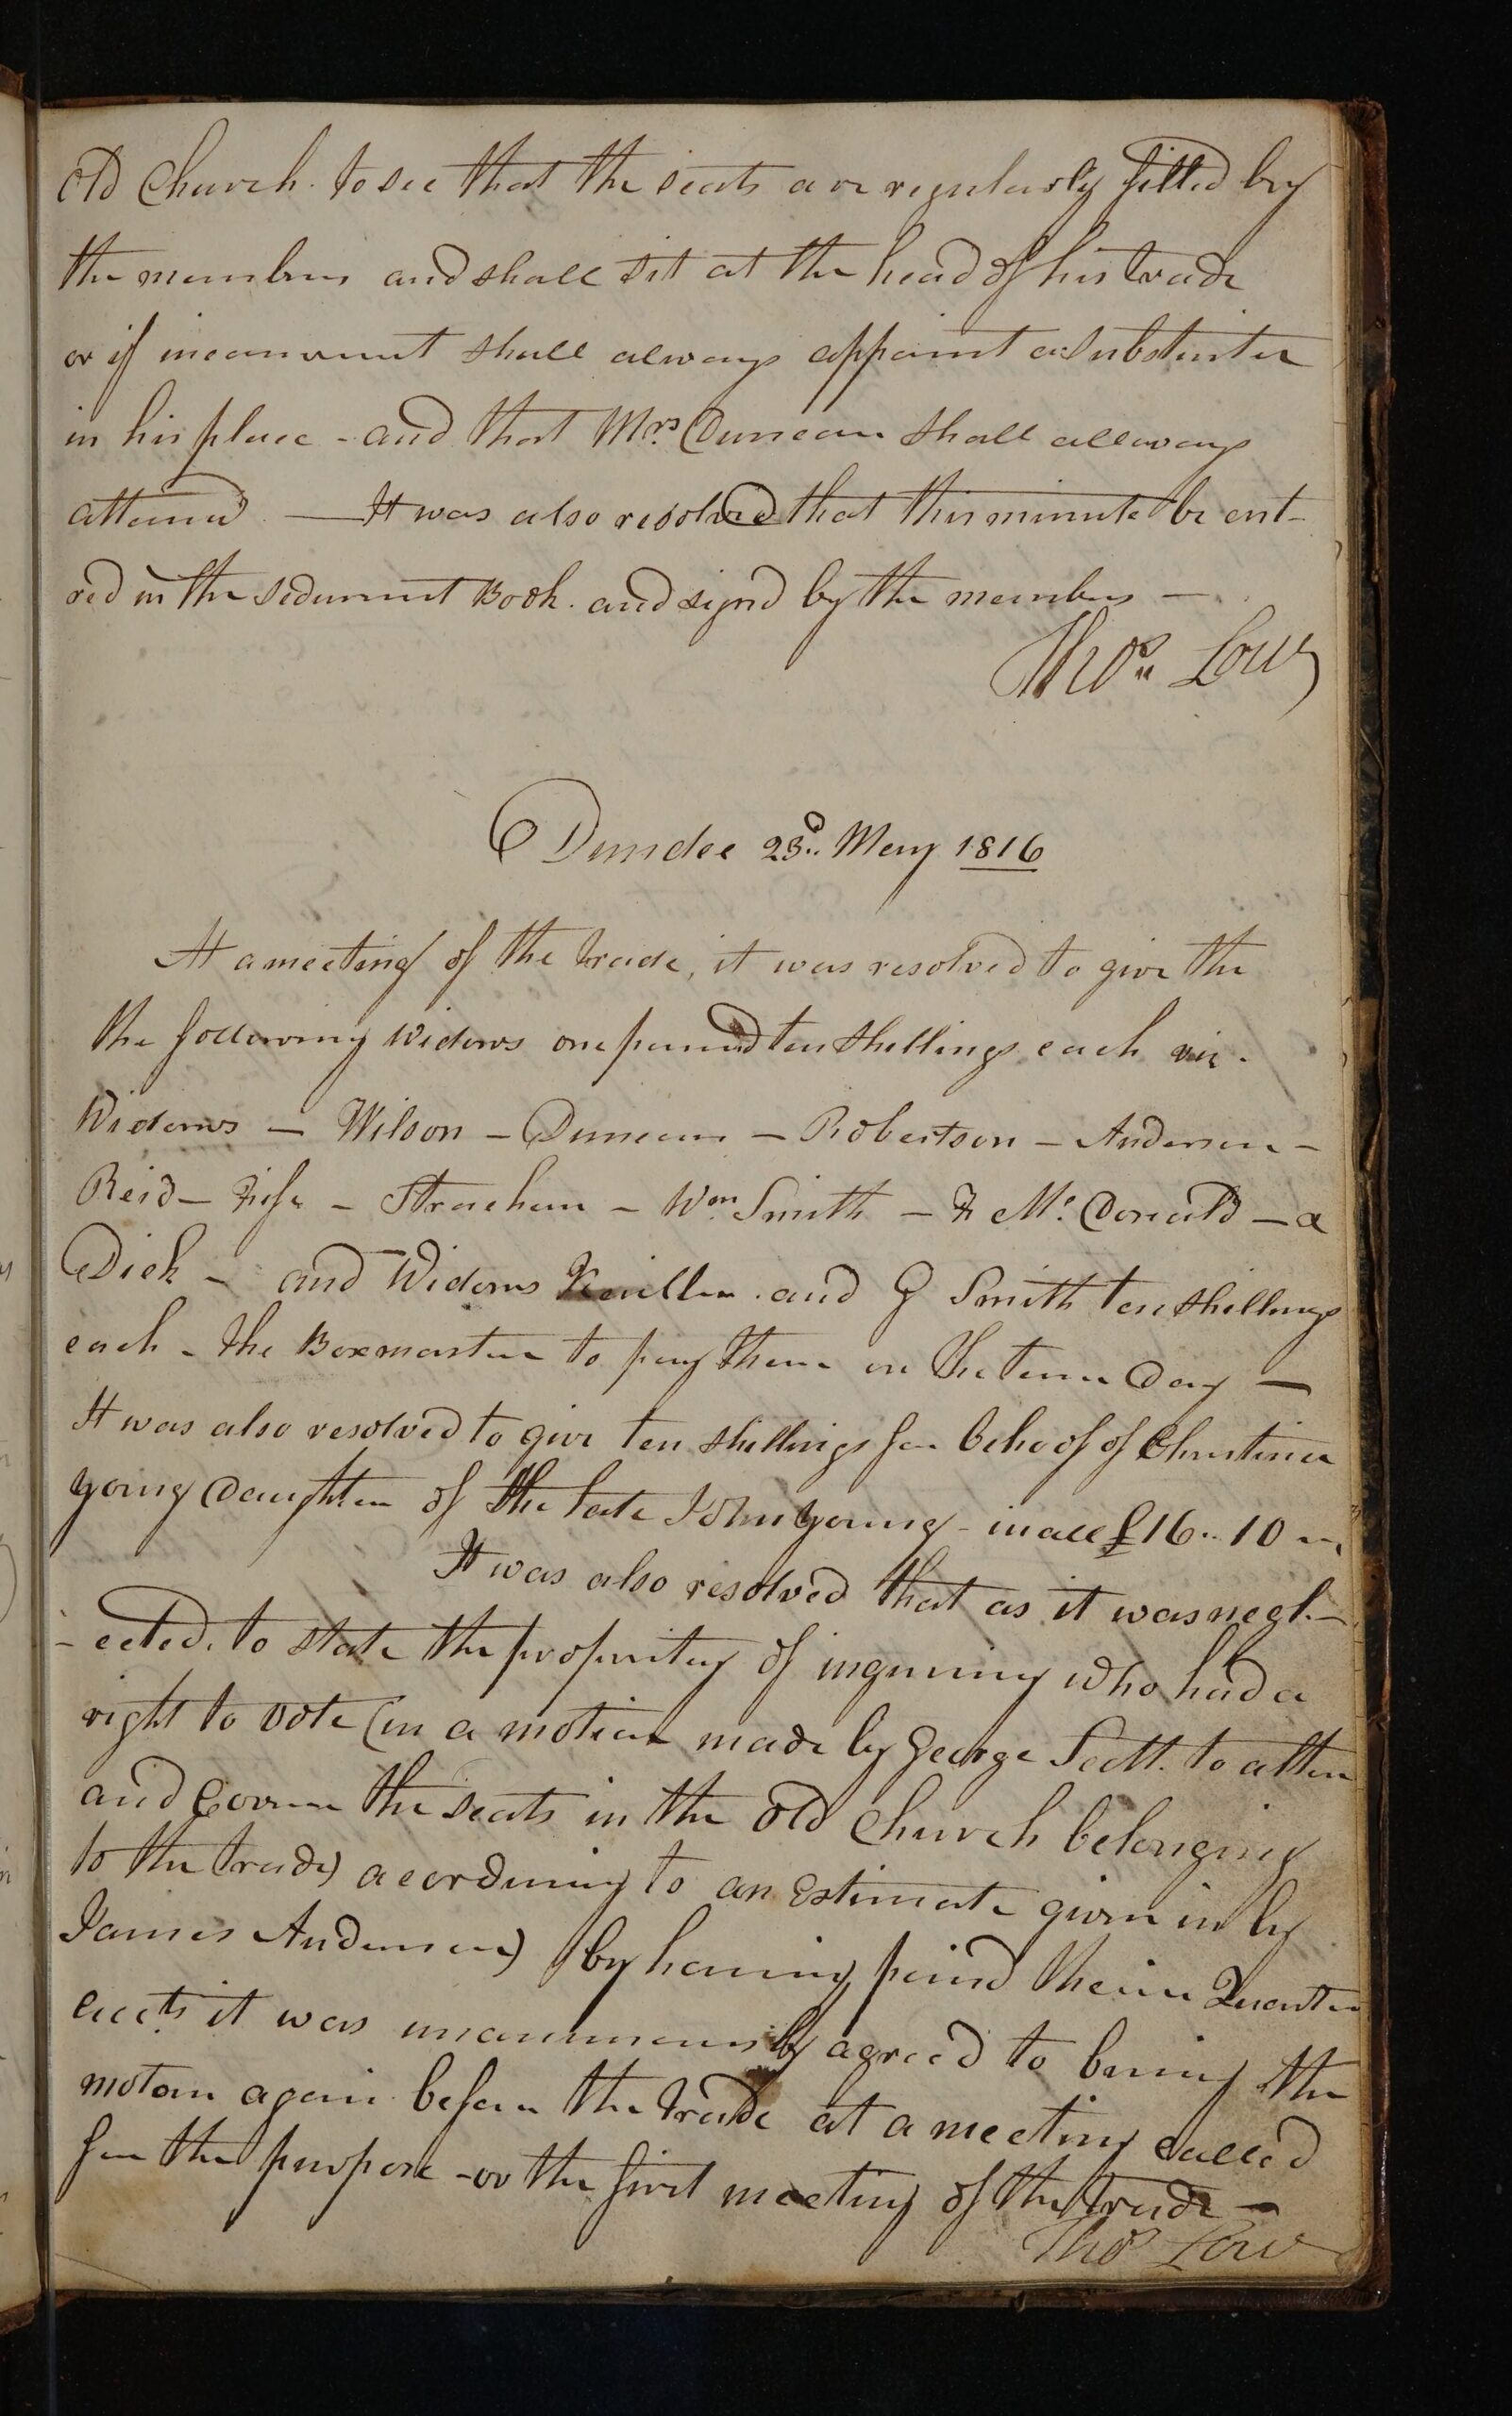 old Church. to see that the seats are regularly filled by
the members and shall sit at the head of his trade
or if inconvenient shall always appoint a Substitute
in his place - and that Mrs Duncan shall allways
attend — It was also resolved that this minute be ent-
red in the sederunt Book. and signd by the members —
Thos. Low
Dundee 23d. May 1816
At a meeting of the trade, it was resolved to give the
the following Widows one pound ten shillings each viz.
Widows — Wilson — Duncan — Robertson — Anderson —
Reid — Fife — Strachan — Wm. Smith — Mc. Donald — a
Dick — and Widows Keiller. and G Smith ten shillings
each - the Boxmaster to pay them on the term Day —
It was also resolved to give ten shillings for behoof of Christina
young Daughter of the late John young - in all £16..10
It was also resolved that as it was negl-
-ected. to state the propriety of inquiring who had a
right to vote (in a motion made by George Scott. to alter
and Cover the seats in the old Church belonging
to the trade) acording to an Estimate given in by
James Anderson) by having paid their Quarter
acctts. it was unanimously agreed to bring the
motion again before the trade at a meeting called
for the purpose - or the first meeting of the trade —
Thos Low